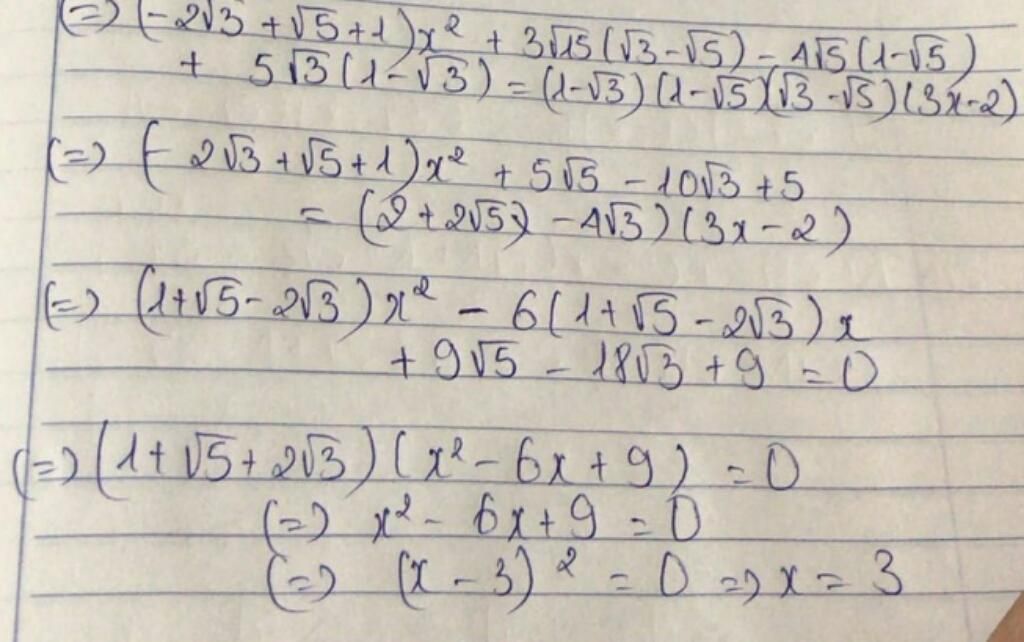 (=) (-2√3 + √5 + 1)x² + 3√15(√3 - √5) - 4√5(1-√5)
+ 5√3(1-√3) = (1-√3)(1-√5)(√3 - √5)(3x-2)
(=) (- 2√3 + √5 + 1)x² + 5√5 - 10√3 + 5
= (2 + 2√5) - 4√3)(3x - 2)
(=) (1+√5 - 2√3)x² - 6(1+√5 - 2√3)x
+ 9√5 - 18√3 + 9 = 0
(=) (1+√5 + 2√3)(x² - 6x + 9) = 0
(=) x² - 6x + 9 = 0
(=) (x - 3)² = 0 => x = 3